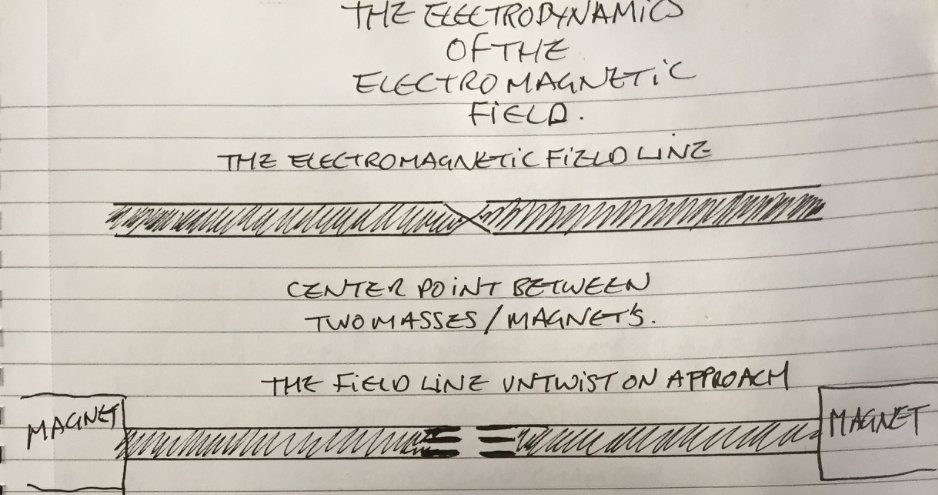 THE ELECTRODYNAMICS
OF THE
ELECTROMAGNETIC
FIELD.
THE ELECTROMAGNETIC FIELD LINE
CENTER POINT BETWEEN
TWO MASSES/MAGNET'S.
THE FIELD LINE UNTWIST ON APPROACH
MAGNET
MAGNET